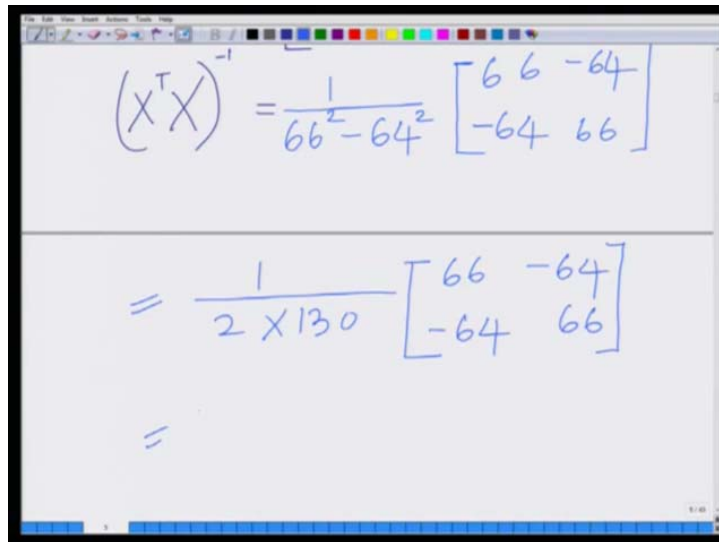 File Edit View Insert Actions Tools Help
(X^T X)^-1 = 1 / (66^2 - 64^2) [66 -64
-64 66]
= 1 / (2 X 130) [66 -64
-64 66]
=